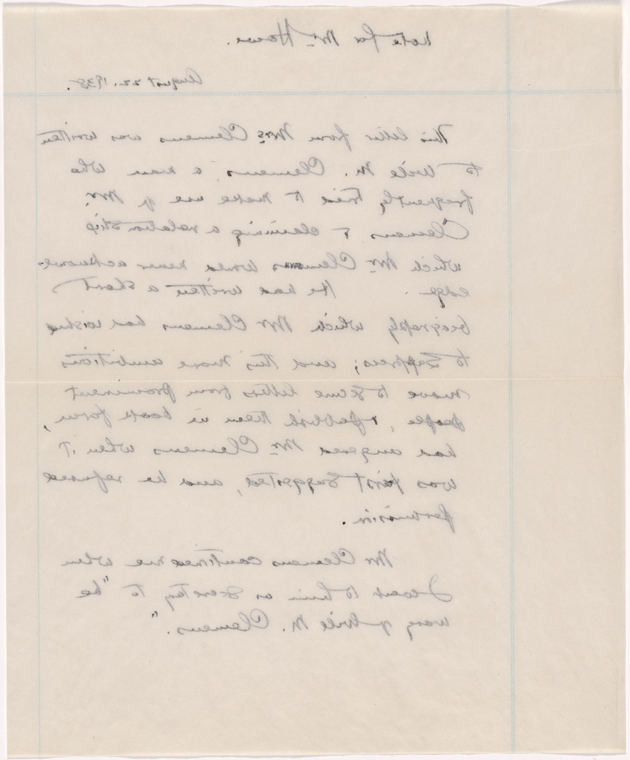 Note for Mr Howe.
August 22, 1938.
This letter from Mrs Clemens was written
to Will M. Clemens, a man who
frequently tried to make use of Mr.
Clemens & claiming a relationship
which Mr Clemens would never acknowl-
edge. He had written a short
biography which Mr Clemens had wished
to suppress; and this more ambitious
move to secure letters from prominent
people, & publish them in book form,
had angered Mr Clemens when it
was first suggested, and he refused
permission.
Mr Clemens cautioned me when
I went to him as secretary to "be
wary of Will M. Clemens."